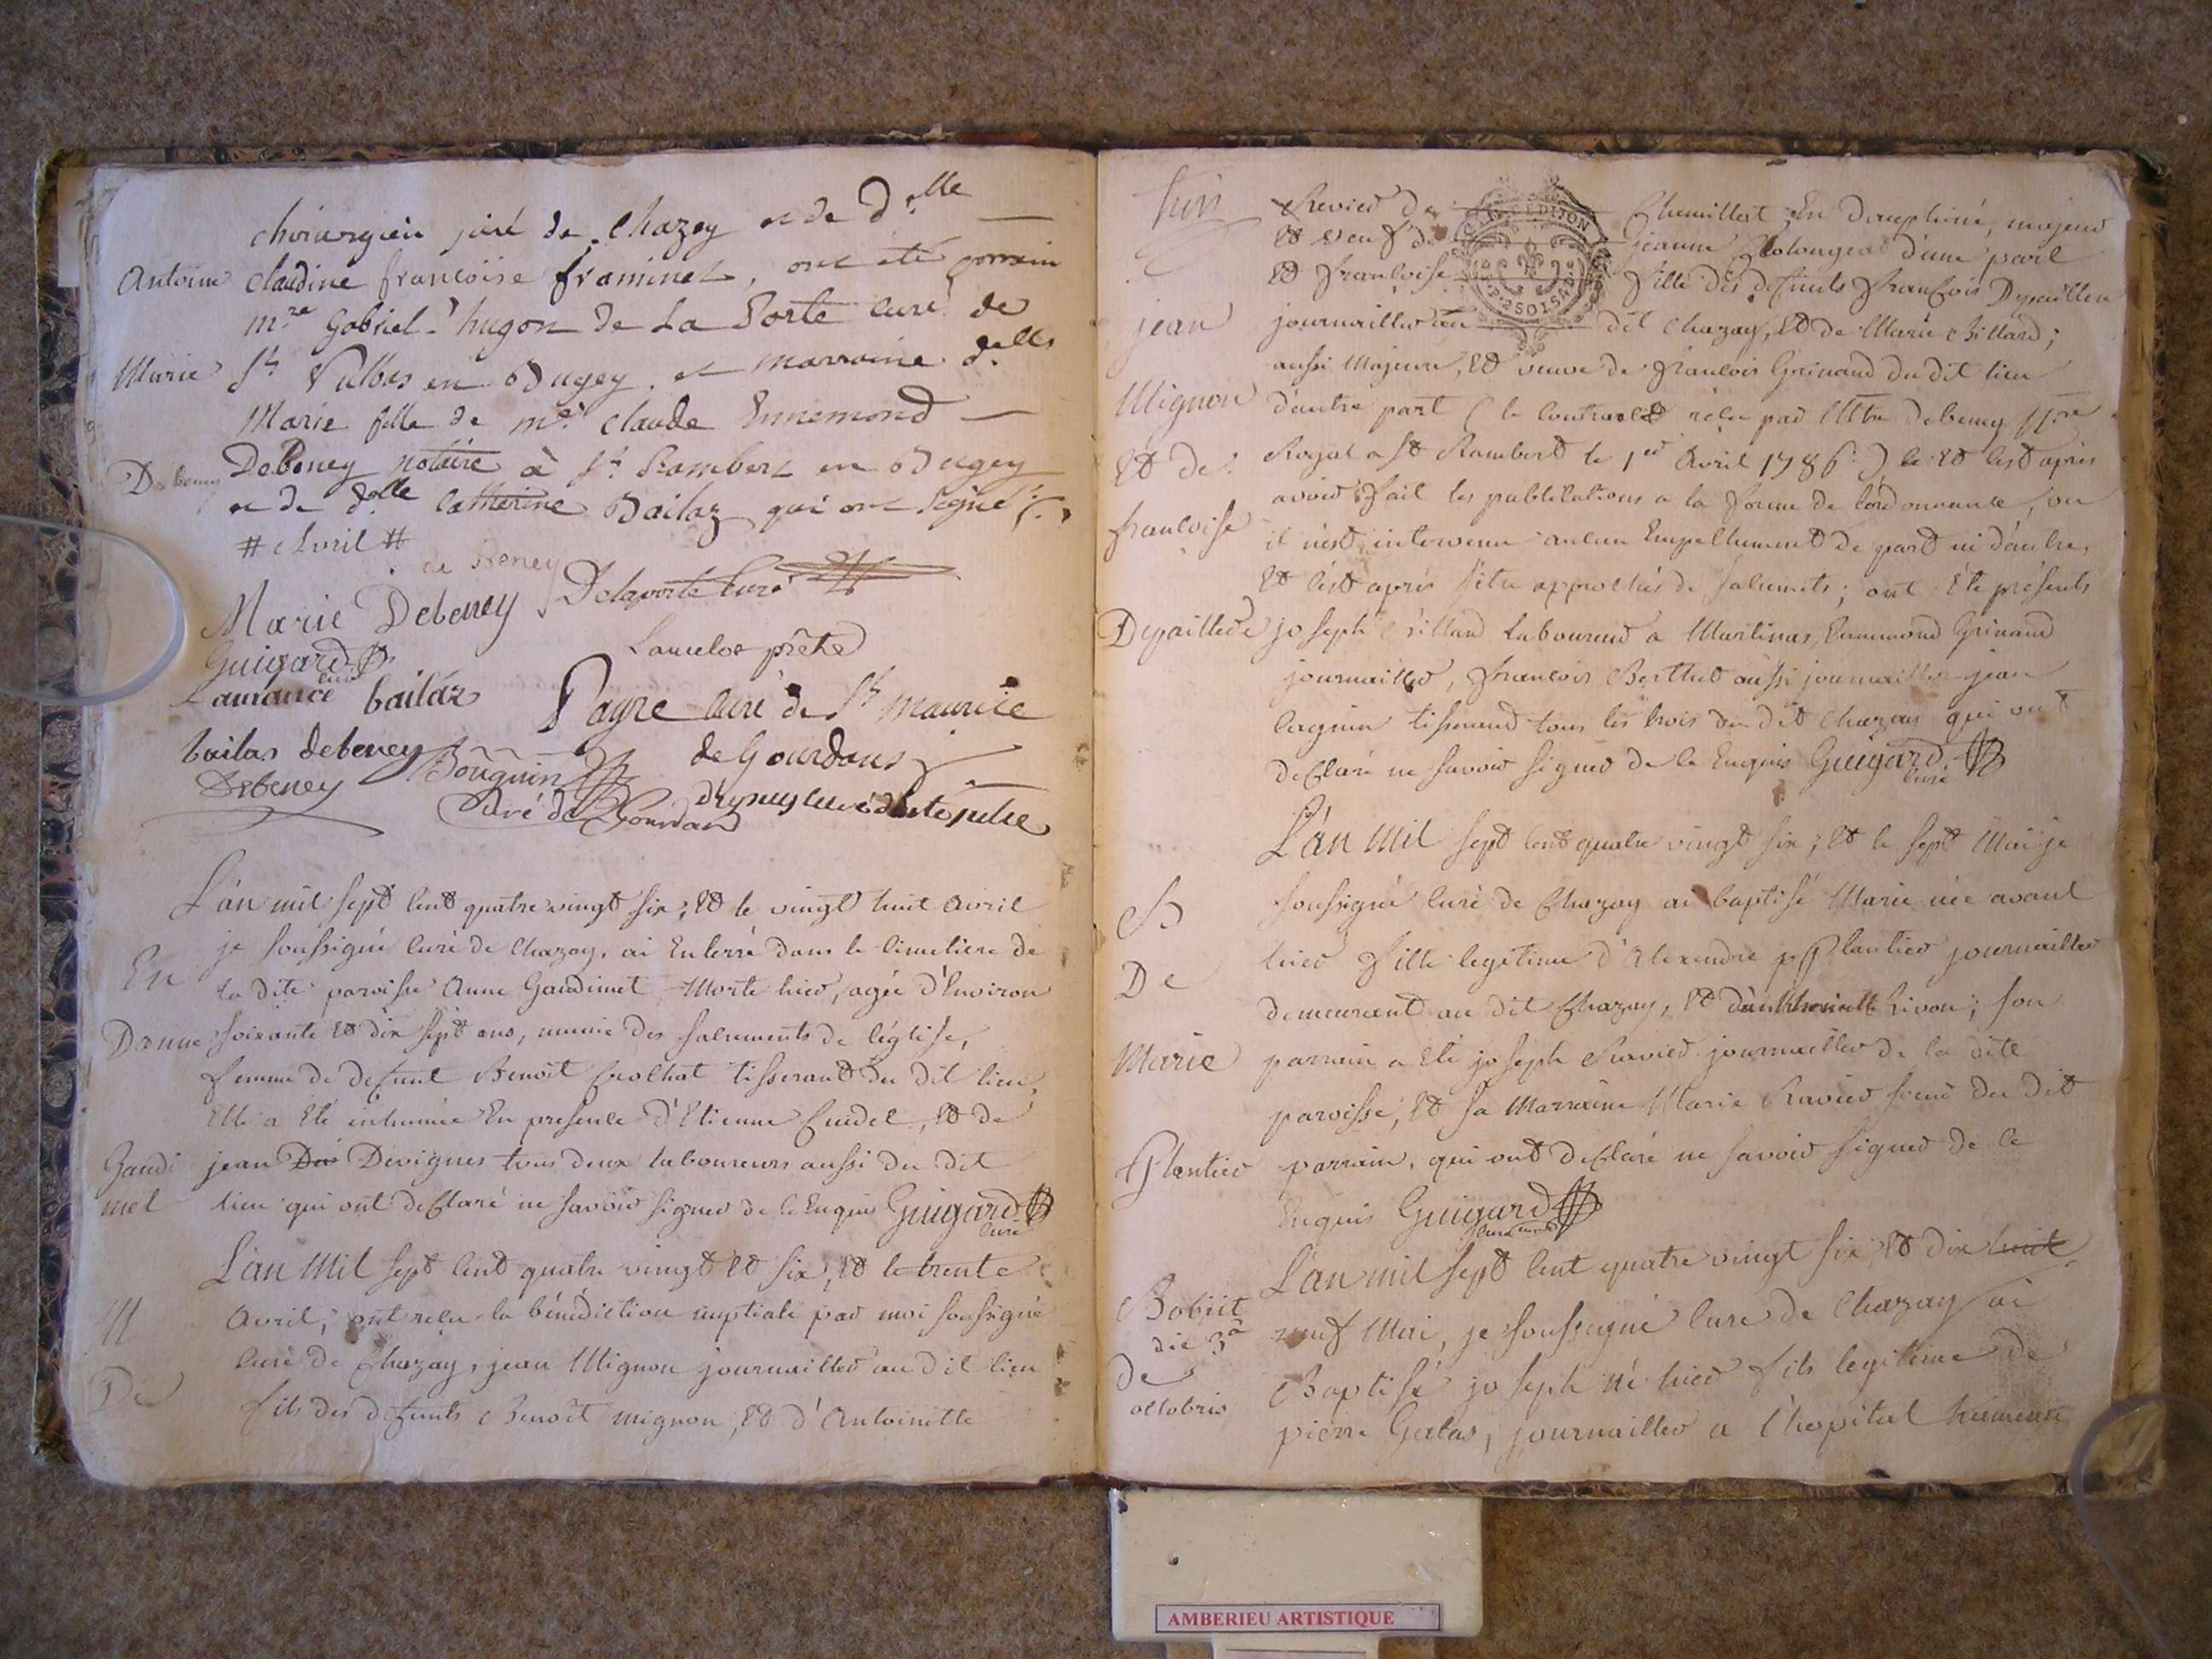 chirurgien juré de Chazey et de d.elle
Antoine claudine françoise framinet, ont eté parrain
m.re Gabriel hugon de La Porte curé de
Marie St Vulbas en Bugey. et marraine d.elle
Marie fille de m.e claude Ennemond
Debeney Debeney notaire à St Rambert en Bugey
et de d.elle Catherine Bailaz qui ont signé
# Avril #
de Beney
Marie Debeney Delaporte Curé
Guigard curé Lancelot prêtre
Laurance bailaz Payre curé de St maurice
bailas debeney de Gourdans
Debeney Bouguin
curé de
L'an mil sept cent quatre vingt six, et le vingt huit avril
En je soussigné curé de Chazay, ai Enterré dans le Cimetiere de
la dite paroisse Anne Gaudimet Morte hier, agée d'Environ
D'anne soixante et dix sept ans, munie des sacrements de l'église,
femme de defunt Benoit Crolhat tisserand du dit lieu,
Elle a Eté inhumée En presence d'Etienne Cuidel, et de
Gaudi jean Devignes tous deux laboureurs aussi du dit
met lieu qui ont declaré ne savoir signer de ce Enquis Guigard curé
L'an Mil sept cent quatre vingt et six, et le trente
M Avril, ont reçu la bénédiction nuptiale par moi soussigné
curé de Chazay, jean Mignon journaillier au dit lieu
De fils des defunts Benoît mignon, et d'Antoinette
Revier de Chemillert, En Dauphiné, majeur
et veuf de jeanne d'une part
et françoise fille des defunts François Depaillier
jean journaillier au dit Chazay, et de Marie Billard;
aussi Majeure, et veuve de francois Grinand du dit lieu
Mignon d'autre part (le Contract réçu par Mtre debeney
et de Royal a St Rambert le 1er Avril 1786.) et c'est après
avoir fait les publications a la forme de l'ordonnance, ou
françoise il n'est intervenu aucun Empechement de part ni d'autre,
et c'est après s'être approchés de sacrements; ont Eté présents
Depaillier joseph Billard Laboureur a Martinas, Ennemond Grinand
journaillier, francois Berthet aussi journaillier jean
tisserand tous les trois du dit Chazay qui ont
declaré ne savoir signer de ce Enquis Guigard curé
L'an Mil sept cent quatre vingt six, et le sept Mai je
B soussigné curé de Chazay ai baptisé Marie née avant
De hier fille legitime d'Alexandre Plantier journaillier
demeurant au dit Chazay, et Livon; son
Marie parrain a Eté joseph Ravier journaillier de la dite
paroisse, et sa Marraine Marie Ravier soeur du dit
Plantier parrain, qui ont declaré ne savoir signer de ce
Enquis Guigard
L'an mil sept cent quatre vingt six et dix huit
Bobiit neuf Mai, je soussigné Curé de Chazay ai
die 3a
De Baptisé joseph né hier fils legitime de
octobris pierre Gatas, journaillier a l'hopital
AMBERIEU ARTISTIQUE